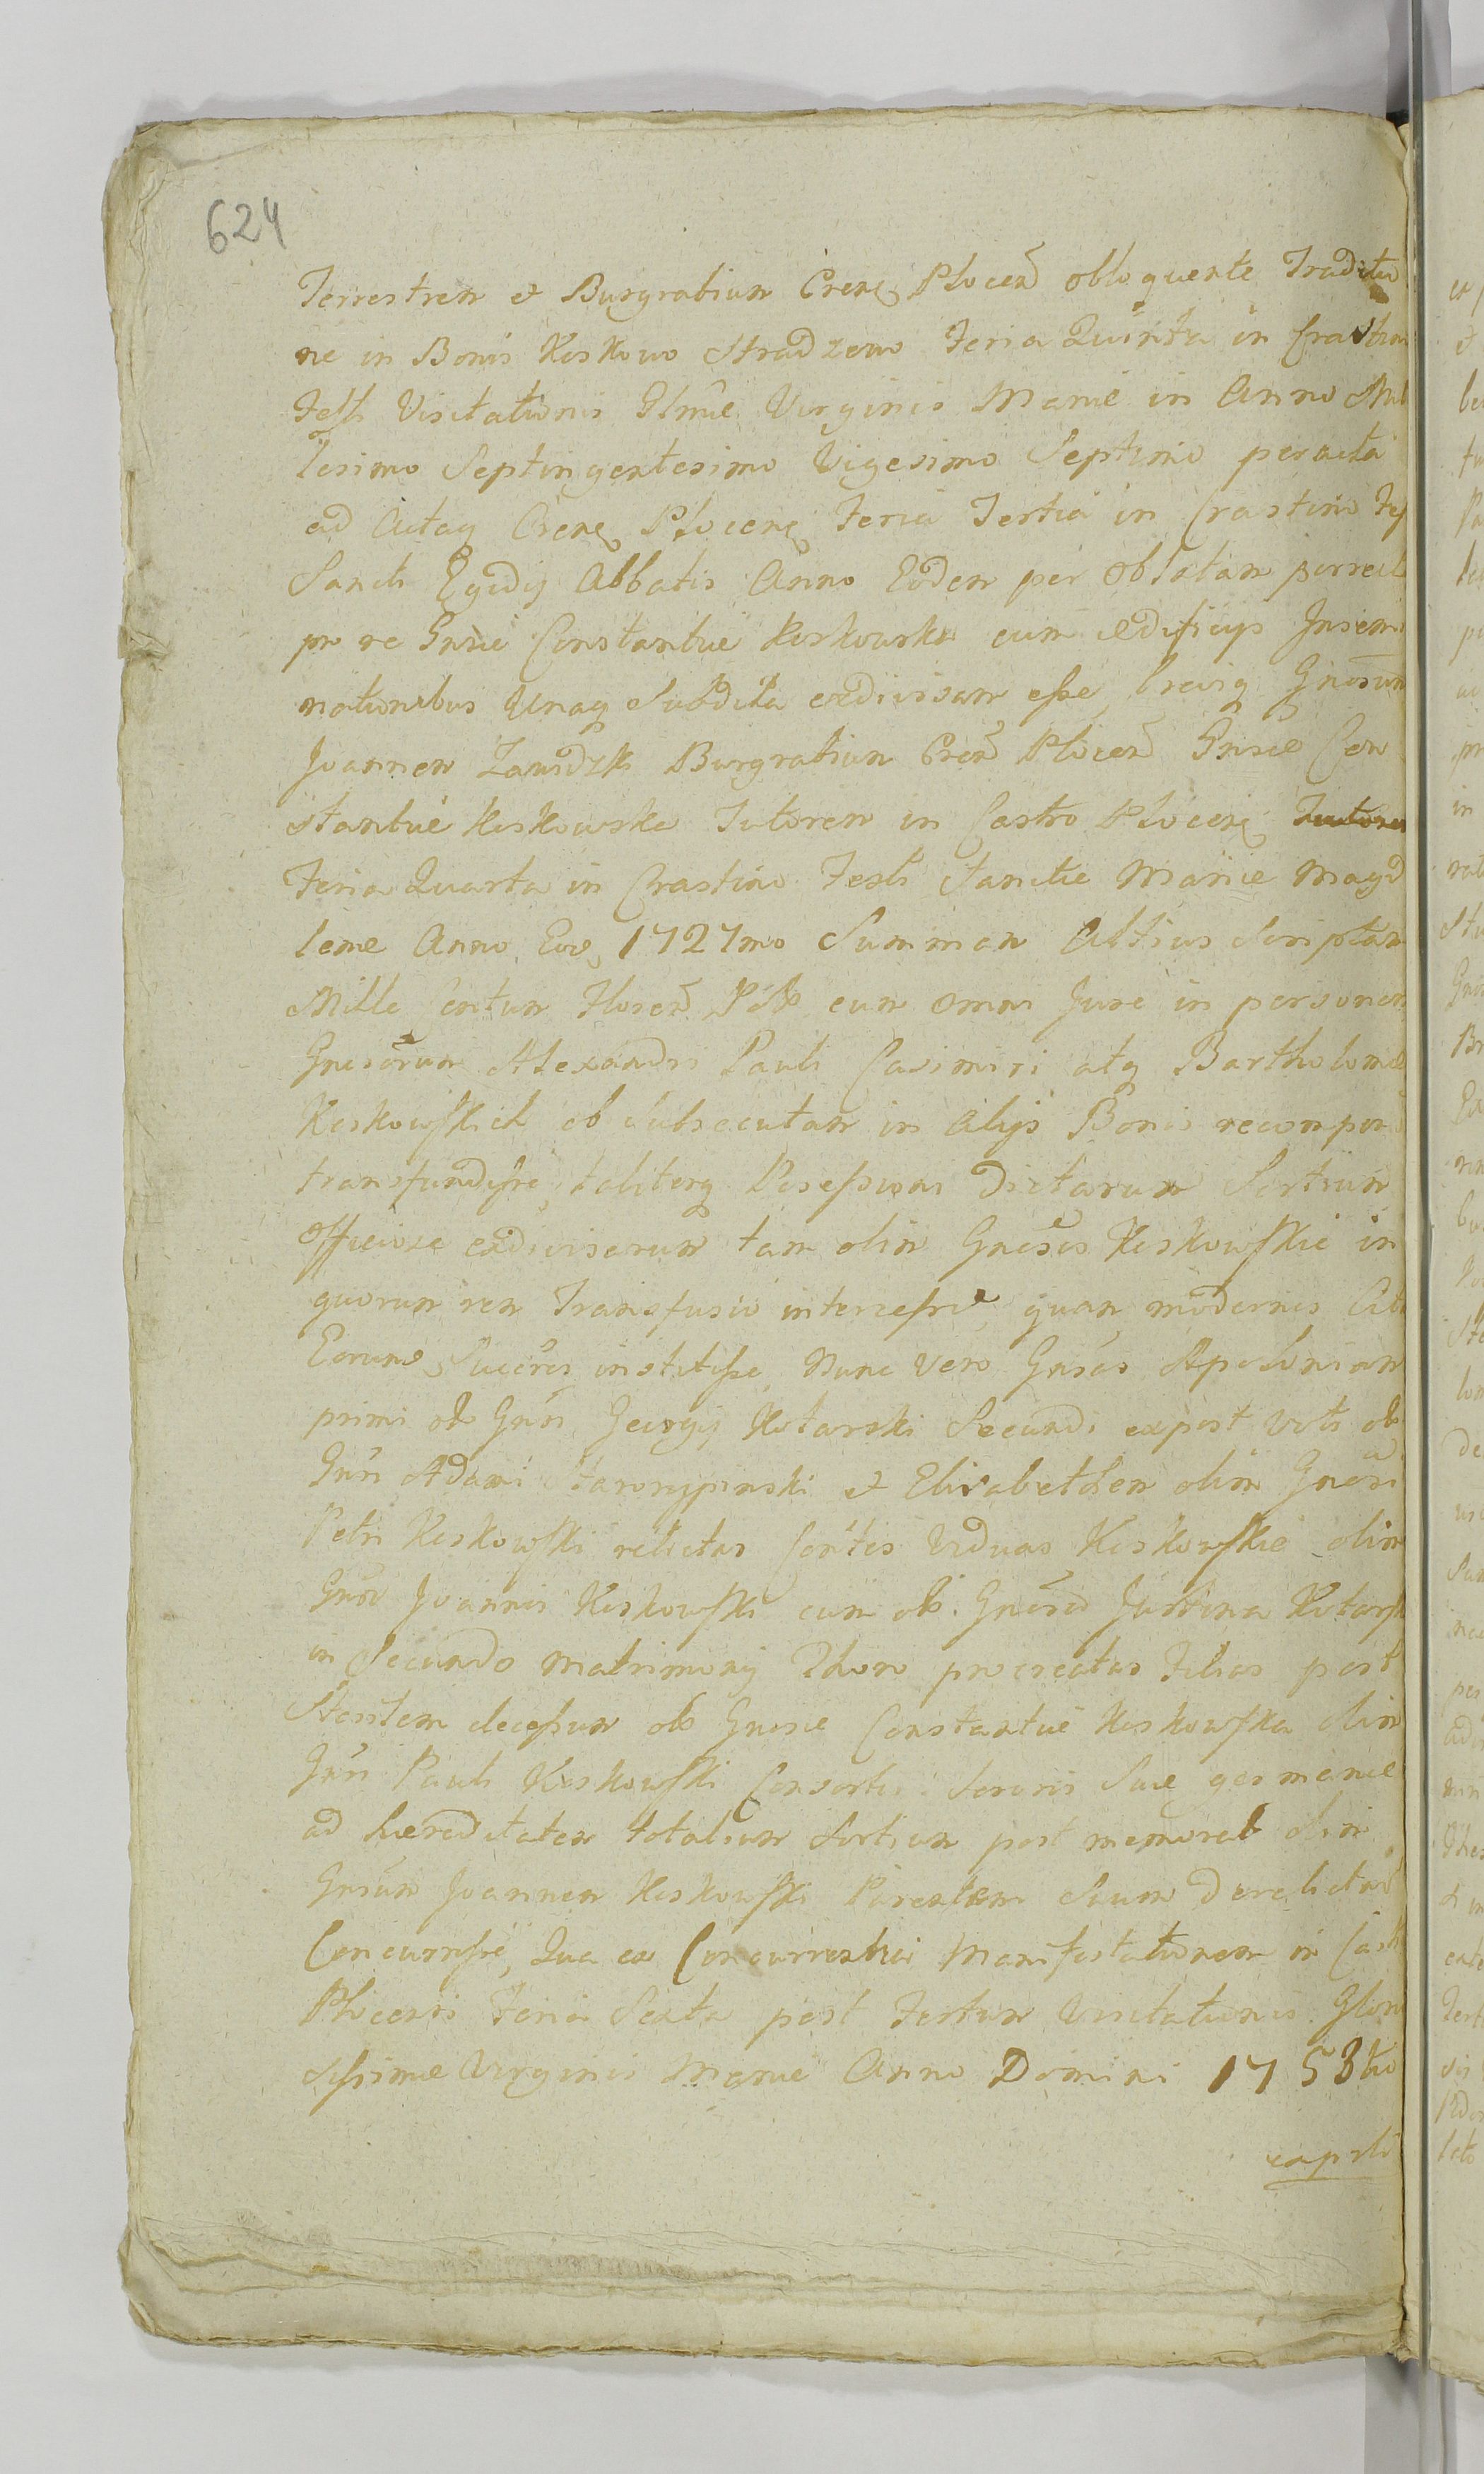 624
Terrestrem et Burgrabium Crens Plocen obloquente Traditio
ne in Bonis Koskowo Stradzewo Feria Quinta in Crastin
Festi Visitationis Glmæ Virginis Mariæ in Anno Mil
lesimo Septingentesimo Vigesimo Septimo peracta
ad Actaq Crens Plocens Feria Tertia in Crastino Fes
Sancti Egidij Abbatis Anno Eodem per Oblatam porrect
pro re Gnsæ Constantiæ Koskowska cum ædificijs Insemi
nationibus Unaq Subdita exdivisam esse,
Joannem Zawidzki Burgrabium Cren Plocen Gnsæ Con
stantiæ Koskowska Tutorem in Castro Plocens
Feria Quarta in Crastino Festi Sanctæ Mariæ Magd
lenæ Anno Eod 1727mo Summam Altius Scriptam
Mille Centum Floren Pol cum omni Jure in personam
Gnosorum Alexandri Pauli Casimiri atq Bartholomæ
Koskowskich ob subsecutam in alijs Bonis recompen
transfundisse, taliterq Possessioni Dictarum Sortium
officiose exdivisarum tam olim Gnosos Koskowskie in
quorum rem Transfusio intercessit quam modernos Act
Eorum Succrs institisse, Nunc vero Gnsas Apoloniam
primi olim Gnsi Georgij Kotarski Secundi expost voti olim
Gnsi Adami Starorypinski et Elisabetham olim Gnosi
Petri Koskowski relictas Contes Viduas Koskowskie olim
Gnsi Joannis Koskowski cum olim Gnosa Justina Kotarsk
in Secundo matrimonij Thoro procreatas Filias post
Sterilem decessum olim Gnosæ Constantiæ Koskowska olim
Gnsi Pauli Koskowski Consortis Sororis Suæ germanæ
ad hæreditatem totalium Sortium post memorat olim
Gnsum Joannem Koskowski Parentem Suum derelictar
Concurrisse, Qua ex Concurrentia Manifestationem in Cast
Plocensi Feria Sexta post Festum Visitationis Glorio
sissimæ Virginis Mariæ Anno Domini 1753tio